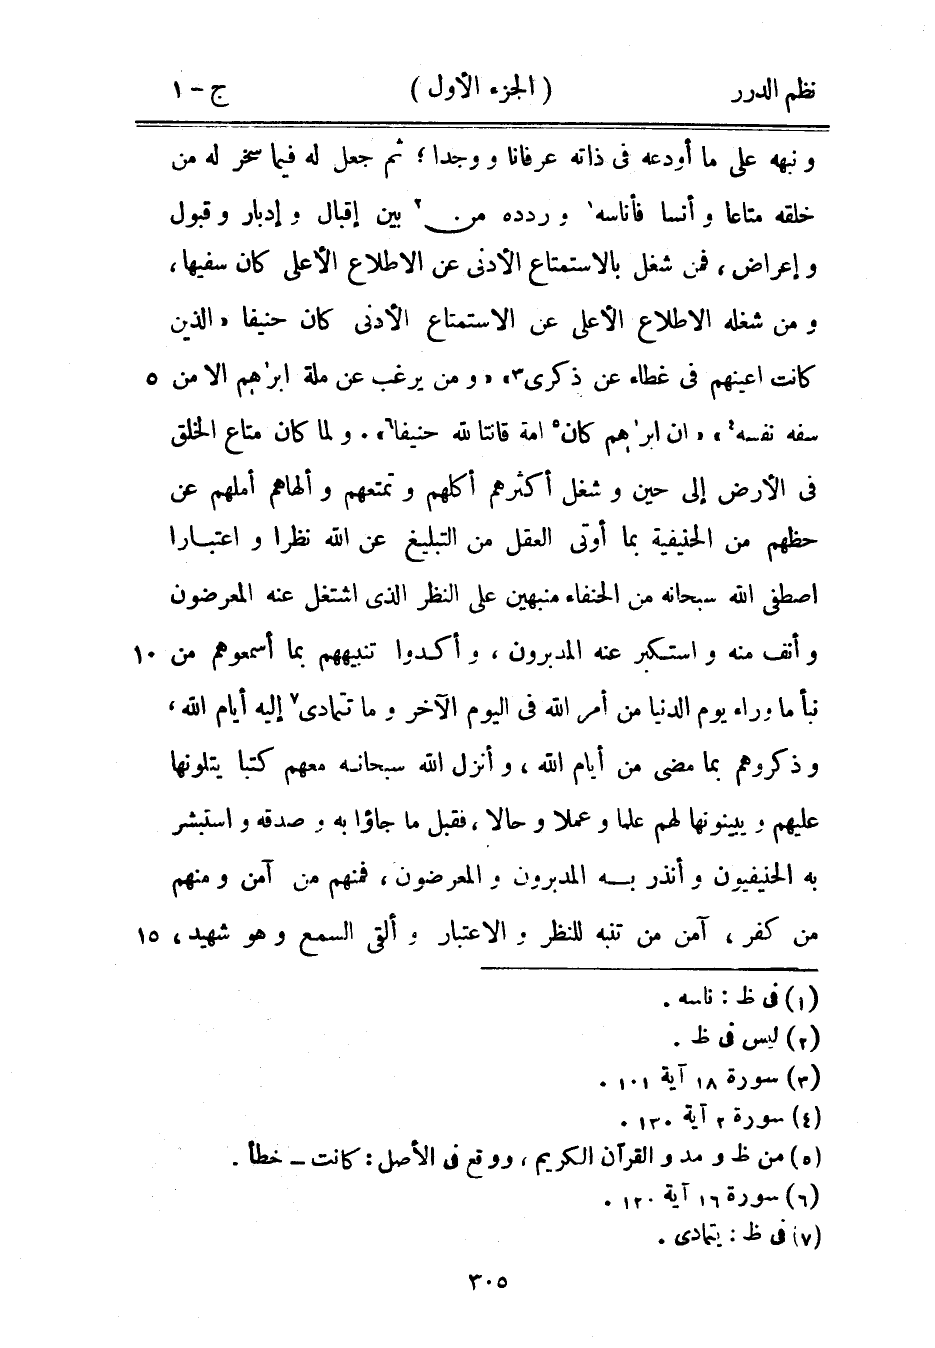 نظم الدرر (الجزء الأول) ج - ١
و نبهه على ما أودعه فى ذاته عرفانا و وجدا ؛ ثم جعل له فيما سخر له من
خلقه متاعا و أنسا فأناسه١ و ردده من٢ بين إقبال و إدبار و قبول
و إعراض ، فمن شغل بالاستمتاع الأدنى عن الاطلاع الأعلى كان سفيها ،
و من شغله الاطلاع الأعلى عن الاستمتاع الأدنى كان حنيفا « الذين
كانت اعينهم فى غطاء عن ذكرى٣ » « و من يرغب عن ملة ابرٰهٖم الا من ٥
سفه نفسه٤ » « ان ابرٰهيم كان٥ امة قانتا لله حنيفا٦ » . و لما كان متاع الخلق
فى الأرض إلى حين و شغل أكثرهم أكلهم و تمتعهم و ألهاهم أملهم عن
حظهم من الحنيفية بما أوتى العقل من التبليغ عن الله نظرا و اعتبارا
اصطفى الله سبحانه من الحنفاء منبهين على النظر الذى اشتغل عنه المعرضون
و أنف منه و استكبر عنه المدبرون ، و أكدوا تنبيههم بما أسمعوهم من ١٠
نبأ ما وراء يوم الدنيا من أمر الله فى اليوم الآخر و ما تتمادى٧ إليه أيام الله ،
و ذكروهم بما مضى من أيام الله ، و أنزل الله سبحانه معهم كتبا يتلونها
عليهم و يبينونها لهم علما و عملا و حالا ، فقبل ما جاؤا به و صدقه و استبشر
به الحنيفيون و أنذر به المدبرون و المعرضون ، فمنهم من آمن و منهم
من كفر ، آمن من تنبه للنظر و الاعتبار و ألقى السمع و هو شهيد ، ١٥
(١) فى ظ : ناسه .
(٢) ليس فى ظ .
(٣) سورة ١٨ آية ١٠١ .
(٤) سورة ٢ آية ١٣٠ .
(٥) من ظ و مد و القرآن الكريم ، ووقع فى الأصل : كانت – خطأ .
(٦) سورة ١٦ آية ١٢٠ .
(٧) فى ظ : يتمادى .
٣٠٥